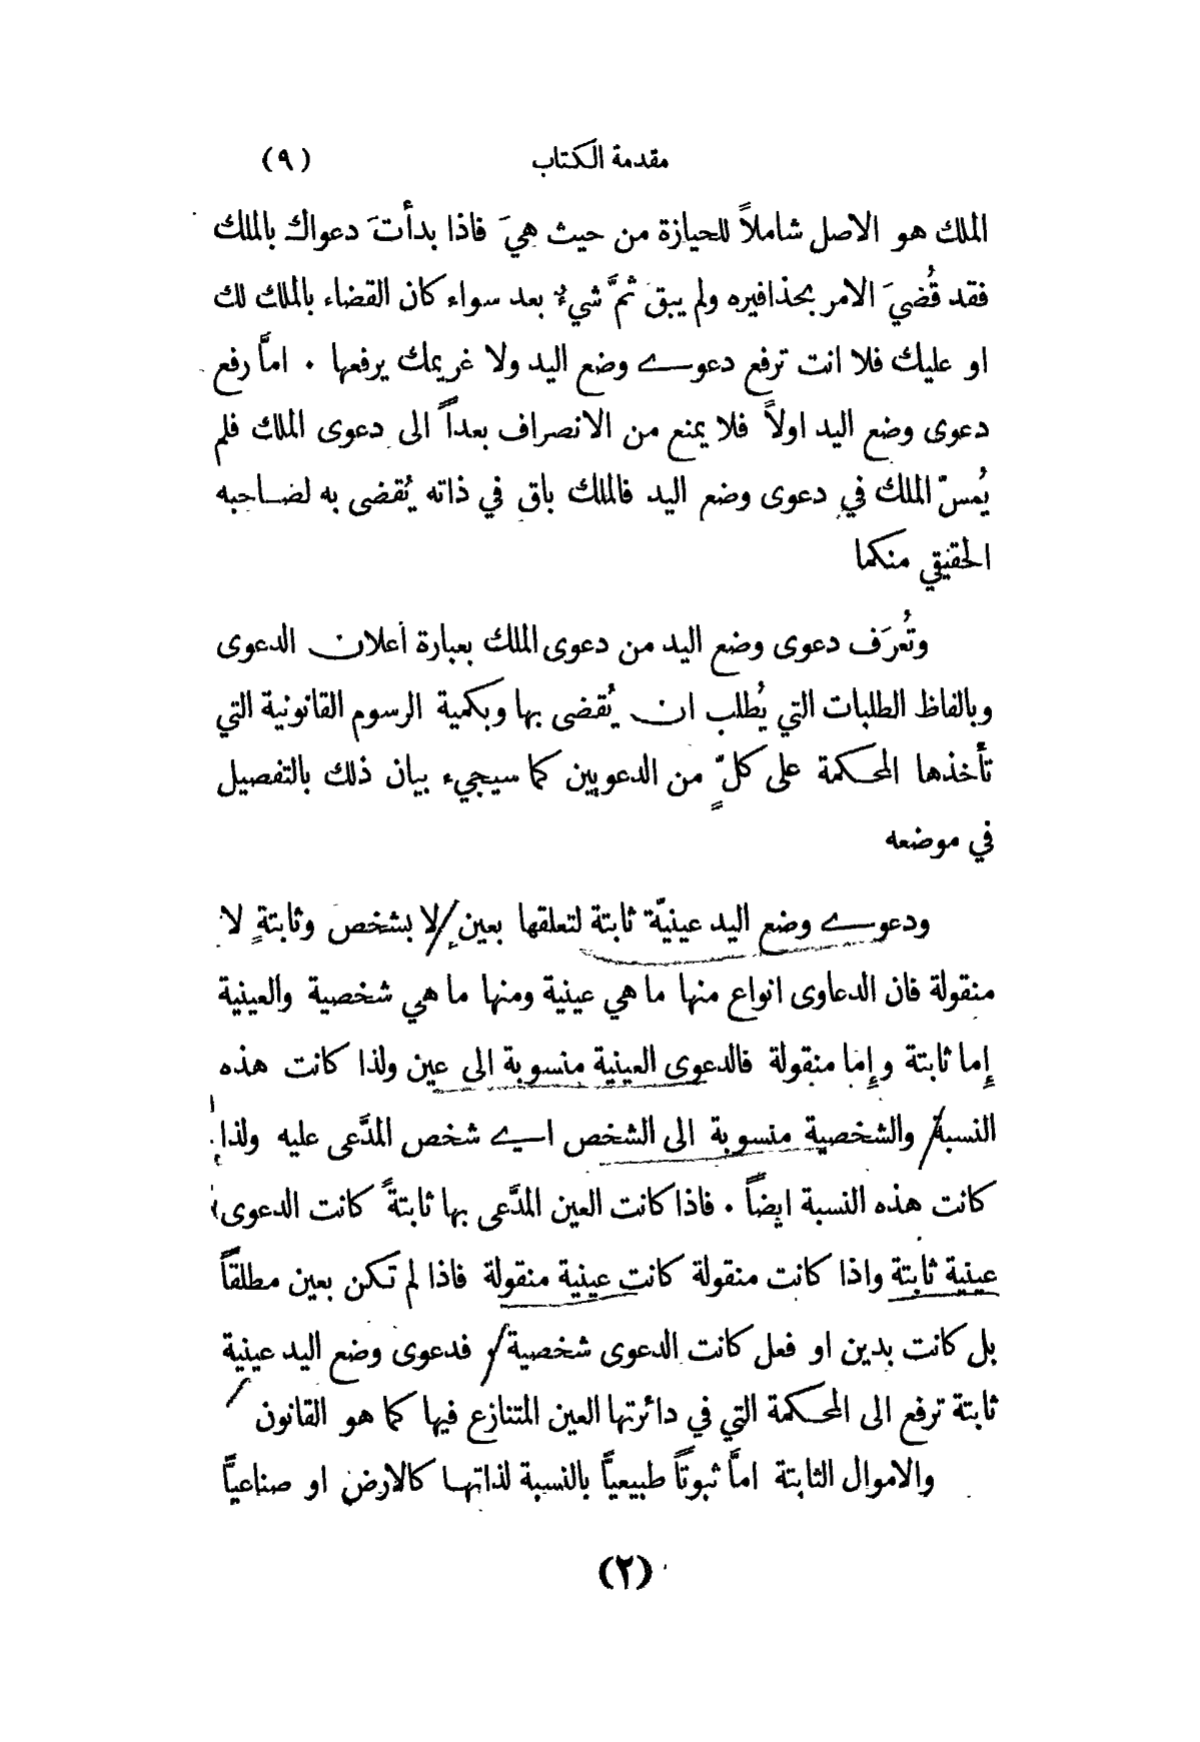 مقدمة الكتاب (٩)
الملك هو الاصل شاملاً للحيازة من حيث هيَ فاذا بدأتَ دعواك بالملك
فقد قُضيَ الامر بحذافيره ولم يبقَ ثمَّ شيءٌ بعد سواء كان القضاء بالملك لك
او عليك فلا انت ترفع دعوى وضع اليد ولا غريمك يرفعها ٠ امَّا رفع
دعوى وضع اليد اولاً فلا يمنع من الانصراف بعداً الى دعوى الملك فلم
يُمسّ الملك في دعوى وضع اليد فالملك باق في ذاته يُقضى به لصاحبه
الحقيقي منكما
وتُعرَف دعوى وضع اليد من دعوى الملك بعبارة أعلان الدعوى
وبالفاظ الطلبات التي يُطلب ان يُقضى بها وبكمية الرسوم القانونية التي
تأخذها المحكمة على كلٍّ من الدعويين كما سيجيء بيان ذلك بالتفصيل
في موضعه
ودعوى وضع اليد عينيّة ثابتة لتعلقها بعينٍ لا بشخص وثابتةٍ لا
منقولة فان الدعاوى انواع منها ما هي عينية ومنها ما هي شخصية والعينية
إما ثابتة وإما منقولة فالدعوى العينية منسوبة الى عين ولذا كانت هذه
النسبة والشخصية منسوبة الى الشخص اي شخص المدَّعى عليه ولذا
كانت هذه النسبة ايضاً ٠ فاذا كانت العين المدَّعى بها ثابتةً كانت الدعوى
عينية ثابتة واذا كانت منقولة كانت عينية منقولة فاذا لم تكن بعين مطلقاً
بل كانت بدين او فعل كانت الدعوى شخصية فدعوى وضع اليد عينية
ثابتة ترفع الى المحكمة التي في دائرتها العين المتنازع فيها كما هو القانون
والاموال الثابتة امَّا ثبوتاً طبيعيًّا بالنسبة لذاتها كالارض او صناعيًّا
(٢)